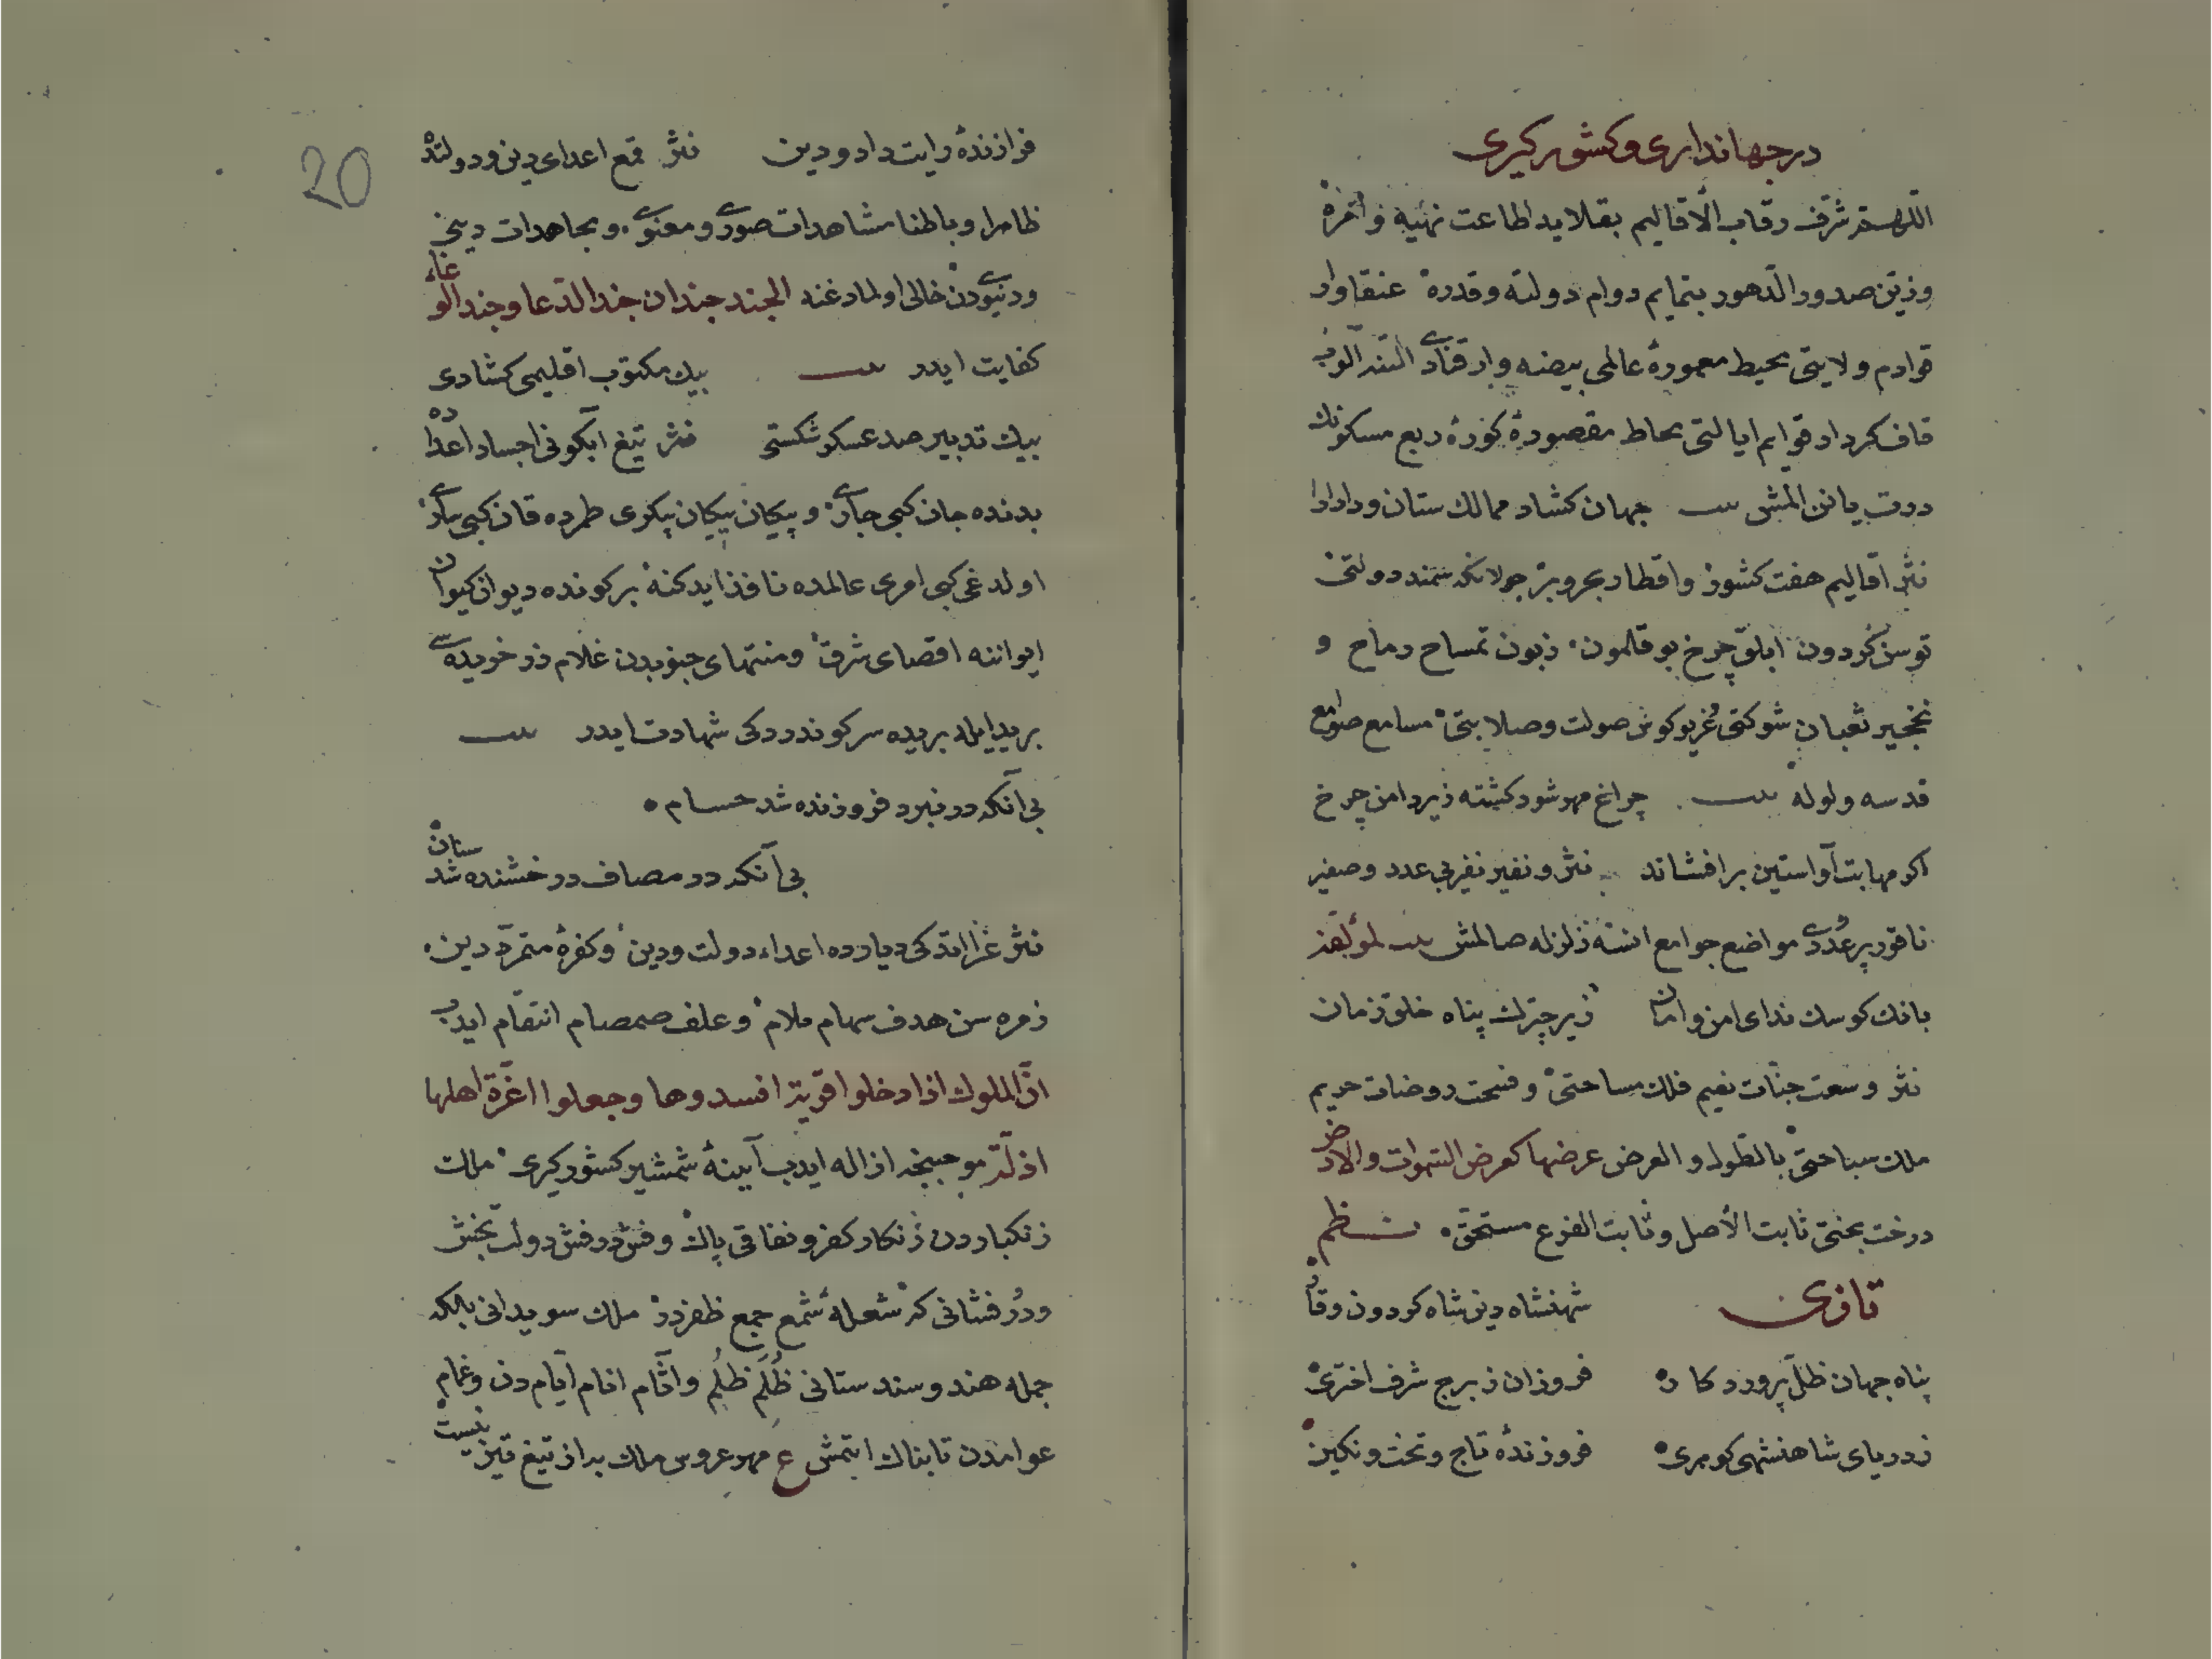 در جهاندارى و كشور كيرى
اللهم شرّف رقاب الأقاليم بقلايد اطاعت نهيه وامره
وزيّن صدور الدّهور بتمايم دوام دولته وقدره عنقاوار
قوادم ولايتى محيط معمورهٔ عالمى بيضه وار قنادى التنه آلوب
قاف كردار قوايم ايالتى محاط مقصورهٔ كورهٔ ربع مسكونك
درت يانن المش بيت جهان كشاد ممالك ستان ودارادا
نثر اقاليم هفت كشور واقطار بحر وبرّ جولانكه سمند دولتى
توسن كردون ابلق چرخ بوقلمون زبون تمساح رماح و
نخجير ثعبان شوكتى غريو كوس صولت وصلابتى مسامع صوامع
قدسه ولوله بيت چراغ مهر شود كشته زير دامن چرخ
اكر مهابت او آستين برافشاند نثر ونفير نفير بى عدد وصفير
ناقور پر عددى مواضع جوامع انسه زلزله صالمش بيت لمؤلفه
بانك كوست نداى امن وامان زير چترك پناه خلق زمان
نثر وسعت جنّات نعيم فلك مساحتى وفسحت روضات حريم
ملك سباحتى بالطّول والعرض عرضها كعرض السّموات والارض
درخت بختى ثابت الأصل ونابت الفرع مستحق نظم
تازى شهنشاه دين شاه كردون وقار
پناه جهان ظلّ پروردكار فروزان ز برج شرف اخترى
ز درياى شاهنشهى كوهرى فروزندهٔ تاج وتخت ونكين
20
فرازندهٔ رايت داد ودين نثر قمع اعداى دين ودولتده
ظاهرا وباطنا مشاهدات صورى ومعنوى ومجاهدات دينى
ودنيوىدن خالى اولمادغنه الجند جندان جند الدّعا وجند الوغاء
كفايت ايدر بيت بيك مكتوب اقليمى كشادى
بيك تدبير صد عسكر شكستى نثر تيغ آبكونى اجساد اعداده
بدنده جان كبى جارى وپيكان پيكان پيكرى طمرده قان كبى سارى
اولدغى كبى امرى عالمده نافذ ايدكنه بر كونده ديوان كيوان
ايواننه اقصاى شرق ومنتهاى جنوبدن غلام زر خريده سى
بريد ايله بريده سر كوندردكى شهادت ايدر بيت
بى آنكه در نبرد فروزنده شد حسام
بى آنكه در مصاف درخشنده شد سنان
نثر غزا اتدكى ديارده اعداء دولت ودين وكفرهٔ متمرّد دين
زمره سن هدف سهام ملام وعلف صمصام انتقام ايدب
انّ الملوك اذا دخلوا قرية افسدوها وجعلوا اعزّة اهلها
اذلّة موجبنجه ازاله ايدب آيينهٔ شمشير كشور كيرى ملك
زنكباردن زنكار كفر ونفاقى پاك وفش درفش دولت بخش
ودرفشانى كه شعلهٔ شمع جمع ظفردر ملك سويدانى بلكه
جمله هند وسندستانى ظُلَمِ ظُلُم وآثام انام ايّام دن وغمام
عوامدن تابناك ايتمش ع مهر عروس ملك به از تيغ تيز نيست